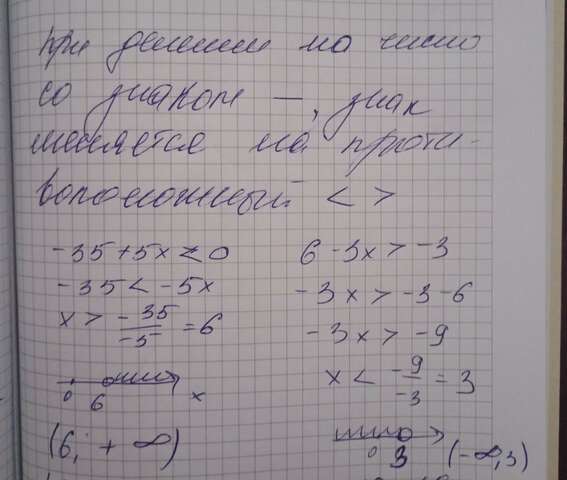 при делении на число
со знаком —, знак
меняется на проти-
воположный < >
-35+5x<0
-35<-5x
x > -35/-5 = 6
0 6 x
(6; + ∞)
6-3x>-3
-3x>-3-6
-3x>-9
x < -9/-3 = 3
0 3
(-∞,3)